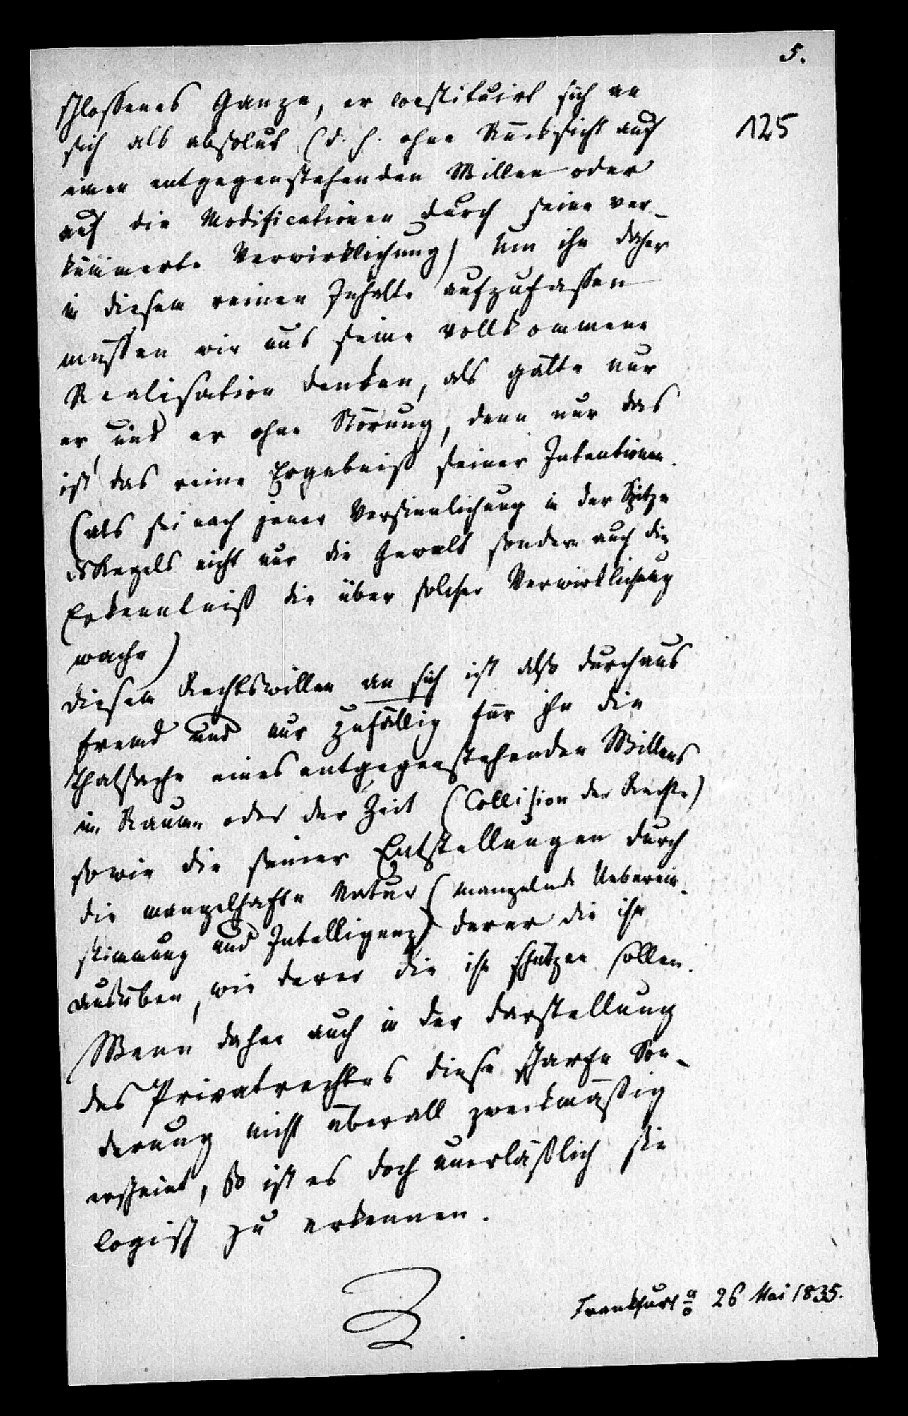 5.
125
schlossenes Ganze, er constituirt sich an
sich als absolut (d. h. ohne Rücksicht auf
einen entgegenstehenden Willen oder
auf die Modificationen durch seine ver-
kümmerte Verwirklichung) Um ihn daher
in diesem reinen Inhalte aufzufassen
müssen wir uns seine vollkommene
Realisation denken, als gälte nur
er und er ohne Störung, denn nur das
ist das reine Ergebniß seiner Intentionen.
(als sei nach jener Versinnlichung in der Spitze
des Kegels nicht nur die Gewalt sondern auch die
Erkenntniß die über solcher Verwirklichung
wache)
Diesem Rechtswillen an sich ist also durchaus
fremd und nur zufällig für ihn die
Thatsache eines entgegenstehenden Willens
im Raume oder der Zeit (Collision der Rechte)
sowie die seiner Entstellungen durch
die mangelhafte Natur (mangelnde Ueberein-
stimmung und Intelligenz) derer die ihn
ausüben, wie derer die ihn schützen sollen.
Wenn daher auch in der Darstellung
des Privatrechtes diese scharfe Son-
derung nicht überall zweckmäßig
erscheint, so ist es doch unerläßlich sie
logisch zu erkennen.
Frankfurt a/o 26 Mai 1835.